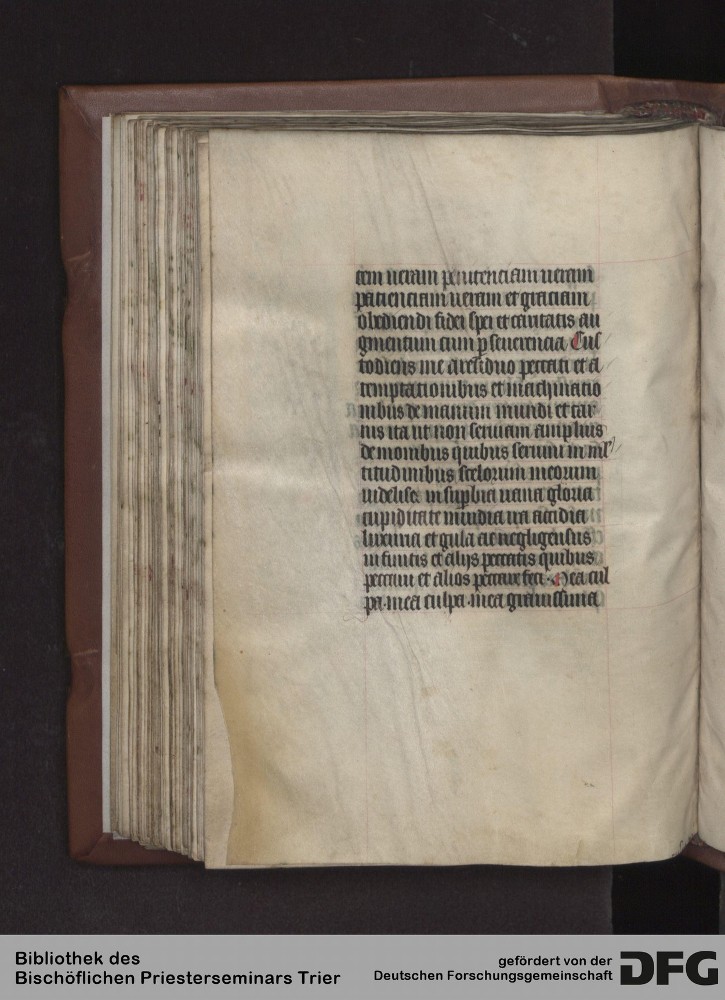 tem ueram penitenciam ueram
patienciam ueram et graciam
obediendi fidei spei et caritatis au
gmentum cum pseuerencia Cus
todiens me a residuo peccati et a
temptationibus et machinatio
nibus de manum mundi et car
nis ita ut non seruiam amplius
demonibus quibus seruiui in ml
titudinibus scelorum meorum
uidelis in supbia uana gloria
cupiditate inuidia ira accidia
luxuria et gula ac negligensus
infinitis et alijs peccatis quibus
peccaui et alios peccare feci Mea cul
pa mea culpa mea grauissima
Bibliothek des
Bischöflichen Priesterseminars Trier
gefördert von der
Deutschen Forschungsgemeinschaft
DFG